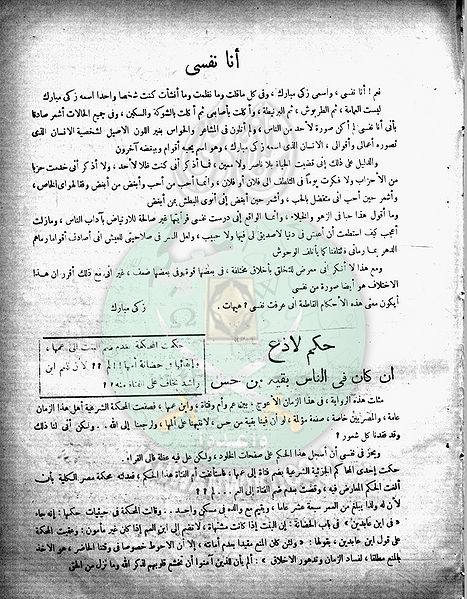 أنا نفسى
نعم! أنا نفسى، واسمى زكى مبارك، وفى كل ماقلت وما نظمت وما أنشأت كنت شخصا واحدا اسمه زكى مبارك
لبست العمامة، ثم الطربوش، ثم البرنيطة، وأكلت بأصابعى ثم أكلت بالشوكة والسكين، وفى جميع الحالات أشعر صادقا
بأنى أنا نفسى لم أكن صورة لأحد من الناس، ولم أتلون فى المشاعر والحواس بغير اللون الاصيل لشخصية الانسان الذى
تصوره أعمالى وأقوالى، الانسان الذى اسمه زكى مبارك، وهو اسم يحبه أقوام ويبغضه آخرون
والدليل على ذلك إلى قضيت الحياة بلا ناصر ولا معين، فما أذكر أنى كنت ظلا لأحد، ولا أذكر أنى خدمت حزبا
من الأحزاب ولا فكرت يوما فى التلطف الى فلان أو فلان، وانما أحب من أحب وأبغض من أبغض وفقا لهواى الخاص،
وأشعر حين أحب انى متفضل بالحب، وأشعر حين أبغض إنى أنوى البطش بمن أبغض
وما أقول هذا حبا فى الزهو والخيلاء، وانما الواقع إنى درست نفسى فرأيتها غير صالحة للارتياض بآداب الناس، ومازلت
أتعجب كيف استطعت أن أعيش فى دنيا لاصديق لى فيها ولا حبيب، ولعل السر فى صلاحيتى للعيش انى أصادف أقواما رماهم
الدهر بما رمانى فتتآلفنا كما يأتلف الوحوش
ومع هذا لا أنكر انى معرض للتخلق بأخلاق مختلفة، فى بعضها قوة وفى بعضها ضعف، غير انى مع ذلك أقرر ان هذا
الاختلاف هو أيضا صورة من نفسى
أيكون معنى هذه الأحكام القاطعة انى عرفت نفسى؟ هيهات.
زكى مبارك
حكم لاذع
ان كان فى الناس بقية من حس
حكمت المحكمة بعدم ضم البنت الى عمها،
وإبقائها فى حضانة أمها!!
مثلت هذه الرواية، فى هذا الزمان الأعوج، بين عم وأم وفتاة، وابن عمها، فصفعت المحكمة الشرعية أهل هذا الزمان
عامة، والمصريين خاصة، صفعة مؤلمة، لو أن فينا بقية من حس، لا نتبهنا على ألمها، ورجعنا إلى الله.. ولكن أنى لنا ذلك
وقد فقدنا كل شعور؟
ويحز فى نفسى أن أسجل هذا الحكم على صفحات الخلود، ولكن على فيه عظة قال القراء.
حكمت إحدى المحاكم الجزئية الشرعية بضم فتاة إلى عمها، فاستأنفت أم الفتاة هذا الحكم، فقضت محكمة مصر الكلية بأن
ألغت الحكم المعارض فيه، وقضت بعدم ضم الفتاة إلى العم ...!!؟
لأن له ولدا يبلغ من العمر سبعة عشر عاما، ويقيم مع والده فى مسكن واحد.. وقالت المحكمة فى حيثيات حكمها: إنه جاء
« فى ابن عابدين » فى باب الحضانة: إن البنت إذا كانت مشتهاة، لا تضم إلى ابن العم إذا كان غير مأمون: وعقبت المحكمة
على قول ابن عابدين، بقولها: « ولئن كان المنع مقيدا بعدم أمانته، إلا أن الاحوط خصوصا فى وقتنا الحاضر، هو الاخذ
بالمنع مطلقا، لفساد الزمان وتدهور الاخلاق »: ألم يأن للذين آمنوا أن تخشع قلوبهم لذكر الله وما نزل من الحق